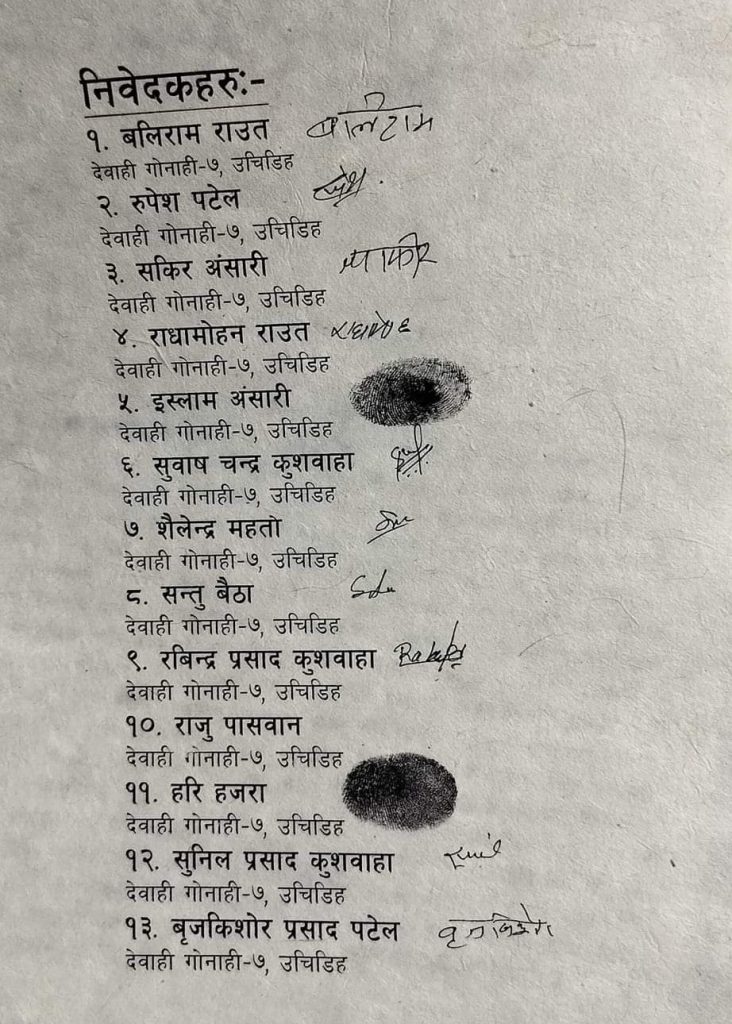 निवेदकहरुः-
१. बलिराम राउत बालिराम
देवाही गोनाही-७, उचिडिह
२. रुपेश पटेल
देवाही गोनाही-७, उचिडिह
३. सकिर अंसारी
देवाही गोनाही-७, उचिडिह
४. राधामोहन राउत
देवाही गोनाही-७, उचिडिह
५. इस्लाम अंसारी
देवाही गोनाही-७, उचिडिह
६. सुवाष चन्द्र कुशवाहा
देवाही गोनाही-७, उचिडिह
७. शैलेन्द्र महतो
देवाही गोनाही-७, उचिडिह
८. सन्तु बैठा
देवाही गोनाही-७, उचिडिह
९. रबिन्द्र प्रसाद कुशवाहा
देवाही गोनाही-७, उचिडिह
१०. राजु पासवान
देवाही गोनाही-७, उचिडिह
११. हरि हजरा
देवाही गोनाही-७, उचिडिह
१२. सुनिल प्रसाद कुशवाहा
देवाही गोनाही-७, उचिडिह
१३. बृजकिशोर प्रसाद पटेल
देवाही गोनाही-७, उचिडिह